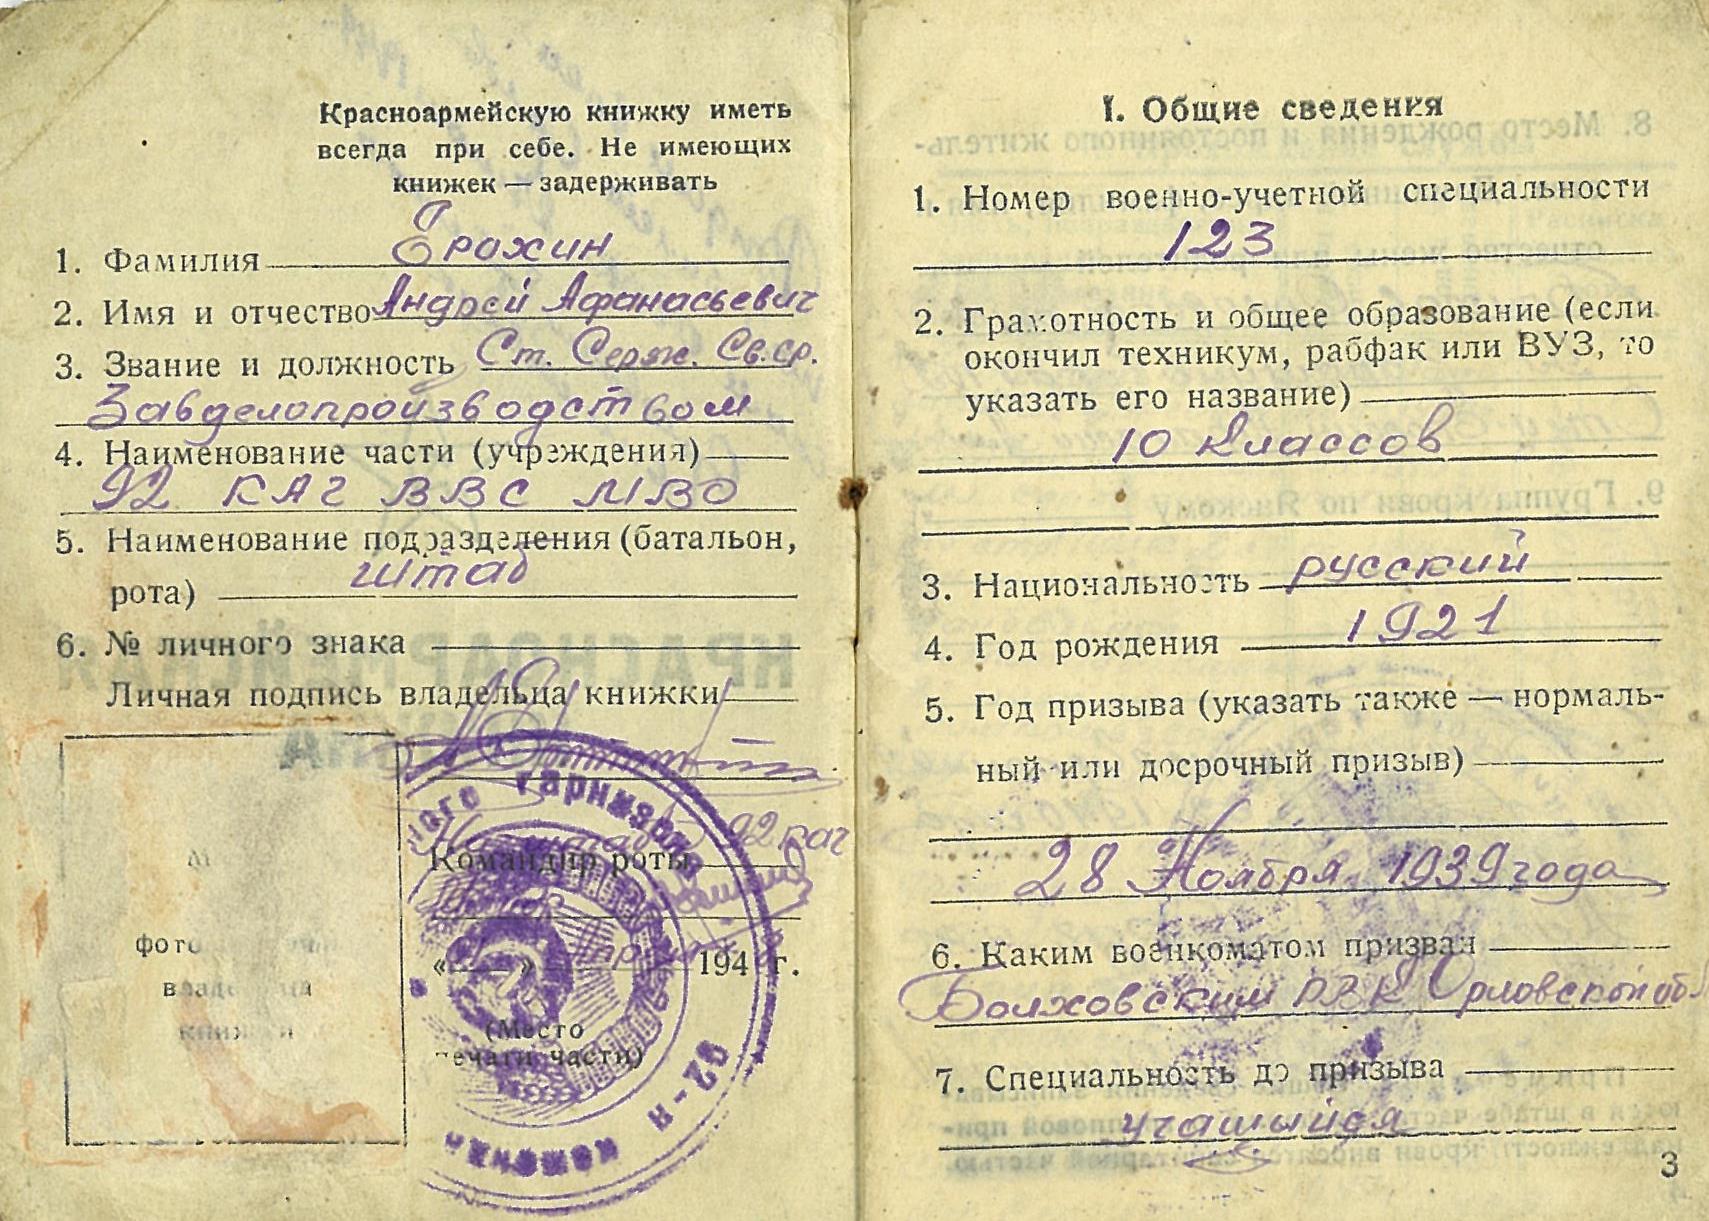 Красноармейскую книжку иметь
всегда при себе. Не имеющих
книжек — задерживать
1. Фамилия Ерохин
2. Имя и отчество Андрей Афанасьевич
3. Звание и должность Ст. Серж. Св. ср.
Завделопроизводством
4. Наименование части (учреждения)
92 КАГ ВВС МВО
5. Наименование подразделения (батальон,
рота) штаб
6. № личного знака
Личная подпись владельца книжки
гарнизона
92 каг
Командир роты
« » 194 г.
(Место
печати части)
92-я
фото
владельца
книжки
I. Общие сведения
1. Номер военно-учетной специальности
123
2. Грамотность и общее образование (если
окончил техникум, рабфак или ВУЗ, то
указать его название)
10 классов
3. Национальность русский
4. Год рождения 1921
5. Год призыва (указать также — нормаль-
ный или досрочный призыв)
28 Ноября 1939 года
6. Каким военкоматом призван
Болховским РВК Орловской обл
7. Специальность до призыва
учащийся
3